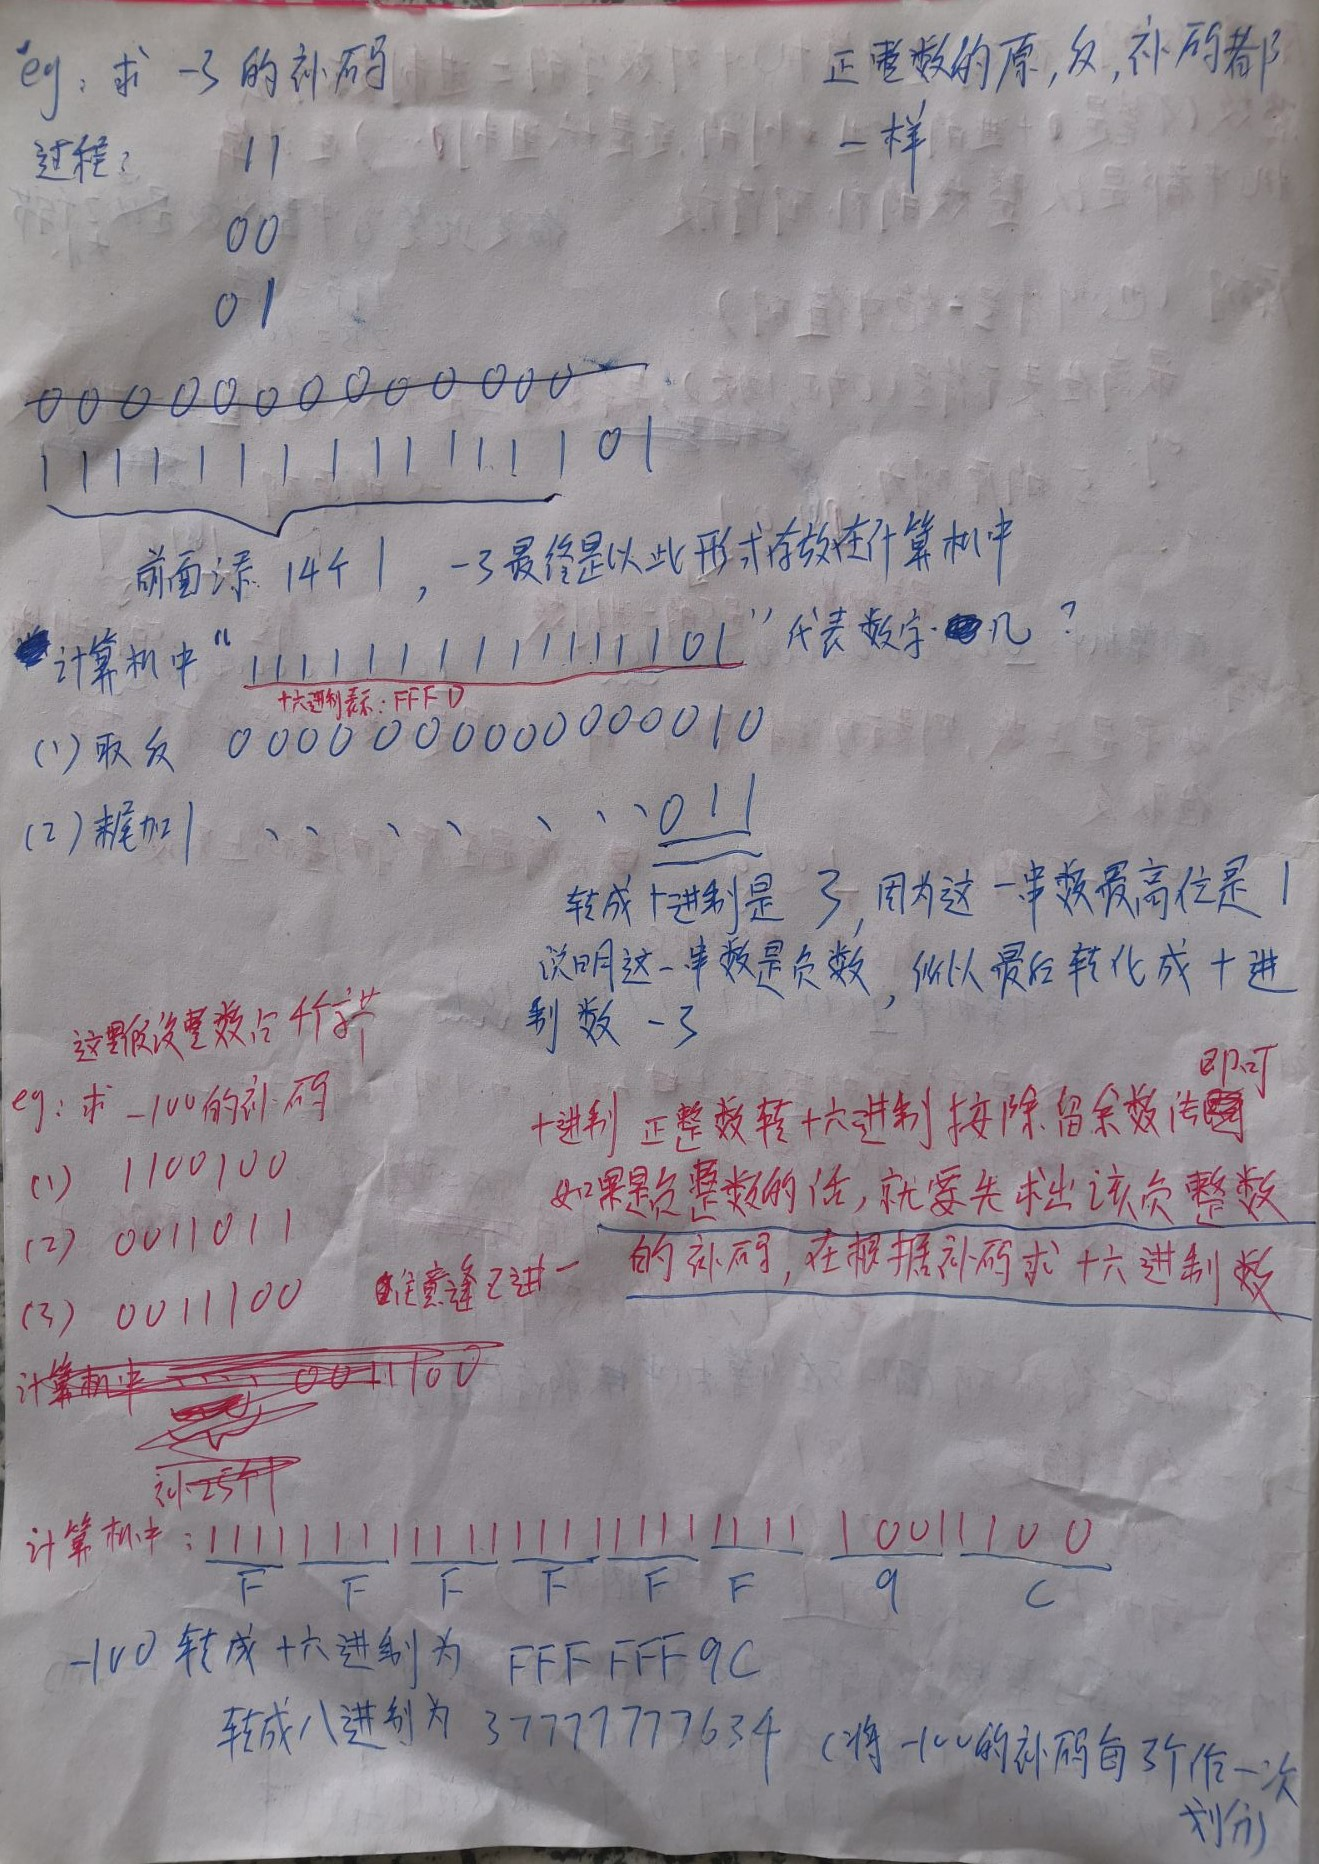 eg：求 -3 的补码
正整数的原，反，补码都
一样
过程：
11
00
01
0000000000000
1111111111111101
前面添 14个1，-3最终是以此形式存放在计算机中
计算机中“1111111111111101”代表数字几？
十六进制表示：FFFD
(1) 取反 0000000000000010
(2) 末尾加1 、、、、、、、011
转成十进制是 3，因为这一串数最高位是 1
说明这一串数是负数，所以最后转化成十进
制数 -3
这里假设整数占4个字节
eg：求 -100的补码
(1) 1100100
(2) 0011011
(3) 0011100 注意逢2进一
十进制 正整数转十六进制按除留余数法即可
如果是负整数的话，就要先求出该负整数
的补码，在根据补码求十六进制数
计算机中 、、、、、 0011100
补25个1
计算机中：1111 1111 1111 1111 1111 1111 1001 1100
F F F F F F 9 C
-100 转成十六进制为 FFFFFF9C
转成八进制为 37777777634 （将 -100的补码每3个作一次
划分）